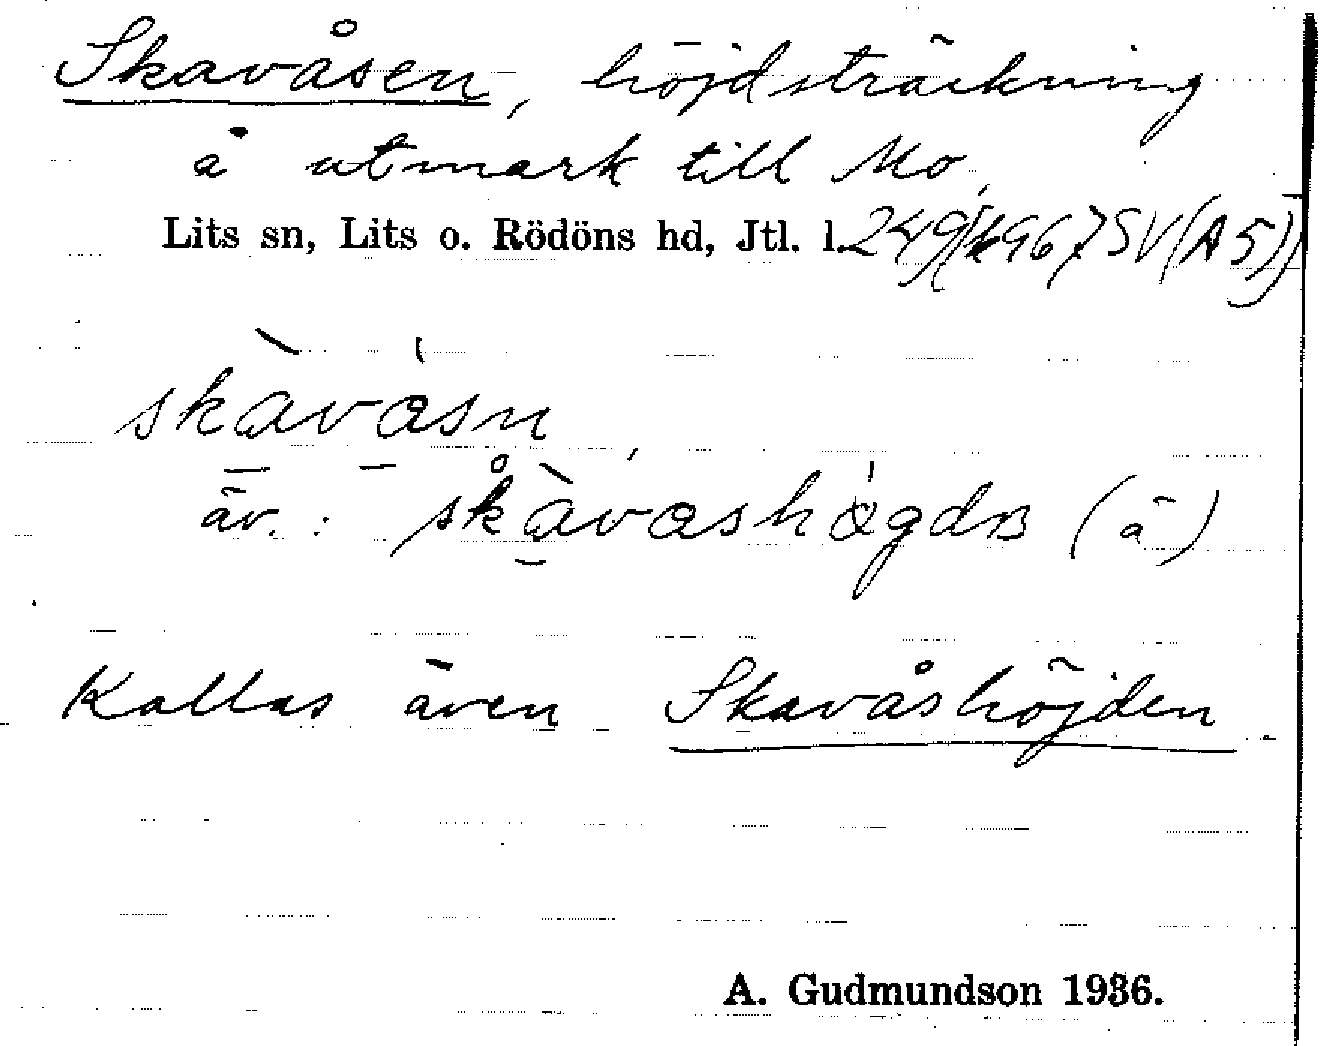 Skavåsen, höjdsträckning
å utmark till Mo,
Lits sn, Lits o. Rödöns hd, Jtl. l.
skàvåsn,
äv.: skàvashøgdɴ (å)
Kallas även Skavåshöjden
A. Gudmundson 1936.